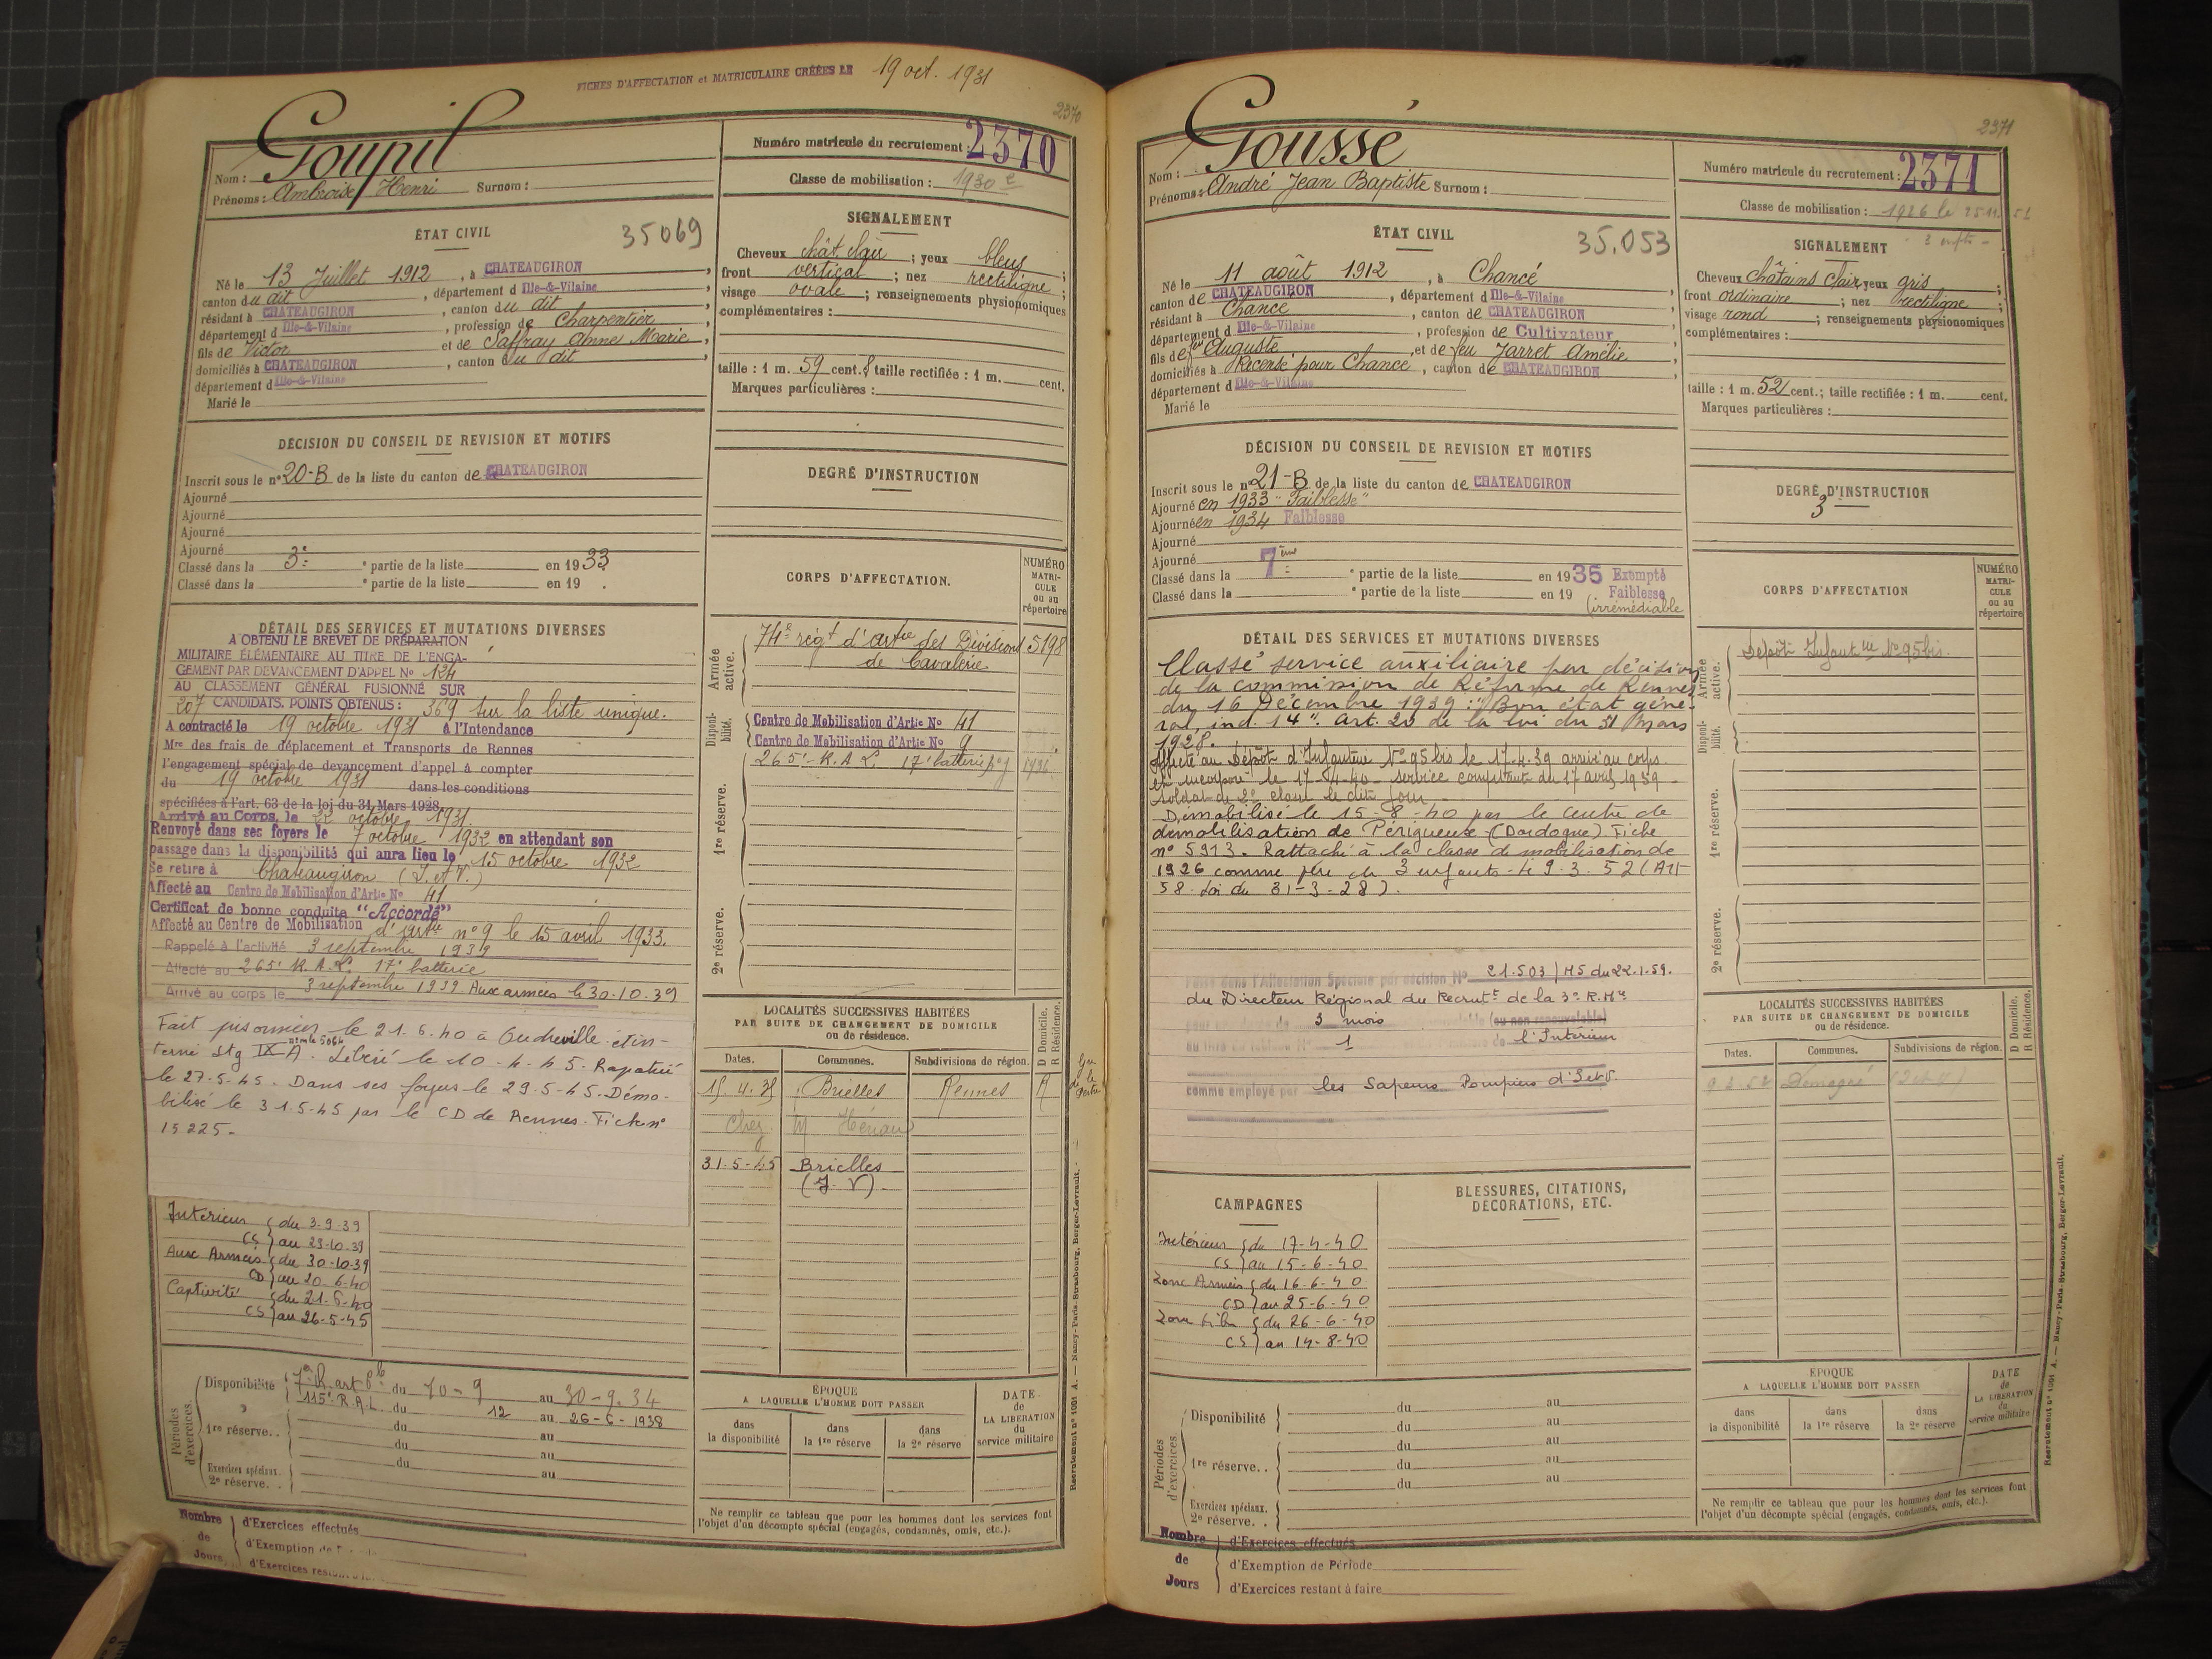 FICHES D'AFFECTATION et MATRICULAIRE CRÉÉES LE 19 oct. 1931
2370
Goupil
Nom :
Prénoms : Ambroise Henri Surnom :
Numéro matricule du recrutement : 2370
Classe de mobilisation : 1930
ÉTAT CIVIL
35069
Né le 13 Juillet 1912, à CHATEAUGIRON,
canton du dit, département d Ille-&-Vilaine,
résidant à CHATEAUGIRON, canton du dit,
département d Ille-&-Vilaine, profession de Charpentier
fils de Victor et de Saffray Anne Marie,
domiciliés à CHATEAUGIRON, canton du dit,
département d Ille-&-Vilaine
Marié le
SIGNALEMENT
Cheveux chât. clair ; yeux bleus ;
front vertical ; nez rectiligne ;
visage ovale ; renseignements physionomiques
complémentaires :
taille : 1 m. 59 cent. ; taille rectifiée : 1 m. cent.
Marques particulières :
DÉCISION DU CONSEIL DE REVISION ET MOTIFS
Inscrit sous le n° 20-B de la liste du canton de CHATEAUGIRON
Ajourné
Ajourné
Ajourné
Ajourné
Classé dans la 3e partie de la liste en 1933
Classé dans la partie de la liste en 19 .
DEGRÉ D'INSTRUCTION
DÉTAIL DES SERVICES ET MUTATIONS DIVERSES
A OBTENU LE BREVET DE PRÉPARATION
MILITAIRE ÉLÉMENTAIRE AU TITRE DE L'ENGA-
GEMENT PAR DEVANCEMENT D'APPEL N° 124
AU CLASSEMENT GÉNÉRAL FUSIONNÉ SUR
207 CANDIDATS. POINTS OBTENUS : 369 sur la liste unique.
A contracté le 19 octobre 1931 à l'Intendance
Mre des frais de déplacement et Transports de Rennes
l'engagement spécial de devancement d'appel à compter
du 19 octobre 1931 dans les conditions
spécifiées à l'art. 63 de la loi du 31 Mars 1928
Arrivé au Corps, le 22 octobre 1931.
Renvoyé dans ses foyers le 7 octobre 1932 en attendant son
passage dans la disponibilité qui aura lieu le 15 octobre 1932
Se retire à Chateaugiron (I. et V.)
Affecté au Centre de Mobilisation d'Artie N° 41
Certificat de bonne conduite "Accordé"
Affecté au Centre de Mobilisation d'artie n° 9 le 15 avril 1933.
Rappelé à l'activité 3 septembre 1939
Affecté au 265e R.A.L. 17e batterie
Arrivé au corps le 3 septembre 1939 Aux armées le 30-10-39
Fait prisonnier le 21.6.40 à Oudreville et in-
terné Stg IX A. nmle 5064 Libéré le 10-4-45. Rapatrié
le 27-5-45. Dans ses foyers le 29.5-45. Démo-
bilisé le 31.5-45 par le CD de Rennes. Fiche n°
15225-
CORPS D'AFFECTATION.
NUMÉRO MATRI-CULE ou au répertoire
Armée active.
74e régt d'artie des Divisions 5198
de Cavalerie
Disponi-bilité.
Centre de Mobilisation d'Artie N° 41
Centre de Mobilisation d'Artie N° 9
265e R.A.L. 17e batterie
1re réserve.
2e réserve.
LOCALITÉS SUCCESSIVES HABITÉES
PAR SUITE DE CHANGEMENT DE DOMICILE
ou de résidence.
D Domicile.
R Résidence.
Dates. Communes. Subdivisions de région.
15.4.35 Brielles Rennes R
Chez M
31-5-45 Brielles
(I. V)
Intérieur du 3-9-39
CS au 29-10-39
Aux Armées du 30-10-39
CD au 20-6-40
Captivité du 21-6-40
CS au 26-5-45
Périodes d'exercices.
Disponibilité du 10-9 au 30-9.34
115e R.A.L. du 12 au 26-6-1938
1re réserve. . du au
du au
du au
Exercices spéciaux.
2e réserve. .
ÉPOQUE
A LAQUELLE L'HOMME DOIT PASSER
dans la disponibilité
dans la 1re réserve
dans la 2e réserve
DATE de LA LIBÉRATION du service militaire
Ne remplir ce tableau que pour les hommes dont les services font
l'objet d'un décompte spécial (engagés, condamnés, omis, etc.).
Nombre de Jours
d'Exercices effectués
d'Exemption
d'Exercices
Recrutement n° 1001 A. — Nancy-Paris-Strasbourg, Berger-Levrault.
2371
Goussé
Nom :
Prénoms : André Jean Baptiste Surnom :
Numéro matricule du recrutement : 2371
Classe de mobilisation : 1926 le
ÉTAT CIVIL
35.053
Né le 11 août 1912, à Chancé
canton de CHATEAUGIRON, département d Ille-&-Vilaine
résidant à Chancé, canton de CHATEAUGIRON
département d Ille-&-Vilaine, profession de Cultivateur
fils de feu Auguste et de feu Jarret Amélie
domiciliés à Recensé pour Chancé, canton de CHATEAUGIRON
département d Ille-&-Vilaine
Marié le
SIGNALEMENT
Cheveux châtains clair, yeux gris ;
front ordinaire ; nez rectiligne ;
visage rond ; renseignements physionomiques
complémentaires :
taille : 1 m. 52 cent.; taille rectifiée : 1 m. cent.
Marques particulières :
DÉCISION DU CONSEIL DE REVISION ET MOTIFS
Inscrit sous le n° 21-B de la liste du canton de CHATEAUGIRON
Ajourné en 1933 "Faiblesse"
Ajourné en 1934 Faiblesse
Ajourné
Ajourné
Classé dans la 7ème partie de la liste en 1935 Exempté
Classé dans la partie de la liste en 19 Faiblesse
(irrémédiable
DEGRÉ D'INSTRUCTION
3
DÉTAIL DES SERVICES ET MUTATIONS DIVERSES
Classé service auxiliaire par décision
de la commission de Réforme de Rennes
du 16 Décembre 1939 : "Bon état géné-
ral, ind. 14". Art. 20 de la loi du 31 Mars
1928.
Affecté au Dépôt d'Infanterie N° 95 bis le 17.4.39 arrivé au corps
et incorporé le 17-4-40 service comptant du 17 avril 1939
Soldat de 2e classe le dit jour
Démobilisé le 15-8-40 par le centre de
démobilisation de Périgueux (Dordogne) Fiche
n° 5913. Rattaché à la classe de mobilisation de
1926 comme père de 3 enfants le 9.3.52 (Art
58 loi du 31-3-28).
dans l'Affectation Spéciale par décision N° 21.503/M5 du 22.1.59.
du Directeur Régional du Recrutt de la 3e R.Mre
3 mois (ou non renouvelable)
1 l'Intérieur
comme employé par les Sapeurs Pompiers d'I et V.
CORPS D'AFFECTATION
NUMÉRO MATRI-CULE ou au répertoire
Armée active.
Dépôt Infantrie N° 95 bis.
Disponi-bilité.
1re réserve.
2e réserve.
LOCALITÉS SUCCESSIVES HABITÉES
PAR SUITE DE CHANGEMENT DE DOMICILE
ou de résidence.
D Domicile.
R Résidence.
Dates. Communes. Subdivisions de région.
9.3.52 Domagné (I et V)
CAMPAGNES
BLESSURES, CITATIONS, DÉCORATIONS, ETC.
Intérieur du 17-4-40
CS au 15-6-40
Zone Armées du 16-6-40
CD au 25-6-40
Zone Libre du 26-6-40
CS au 14-8-40
Périodes d'exercices.
Disponibilité du au
du au
1re réserve. . du au
du au
du au
Exercices spéciaux.
2e réserve. .
ÉPOQUE
A LAQUELLE L'HOMME DOIT PASSER
dans la disponibilité
dans la 1re réserve
dans la 2e réserve
DATE de LA LIBÉRATION du service militaire
Ne remplir ce tableau que pour les hommes dont les services font
l'objet d'un décompte spécial (engagés, condamnés, omis, etc.).
Nombre de Jours
d'Exercices effectués
d'Exemption de Période
d'Exercices restant à faire
Recrutement n° 1001 A. — Nancy-Paris-Strasbourg, Berger-Levrault.